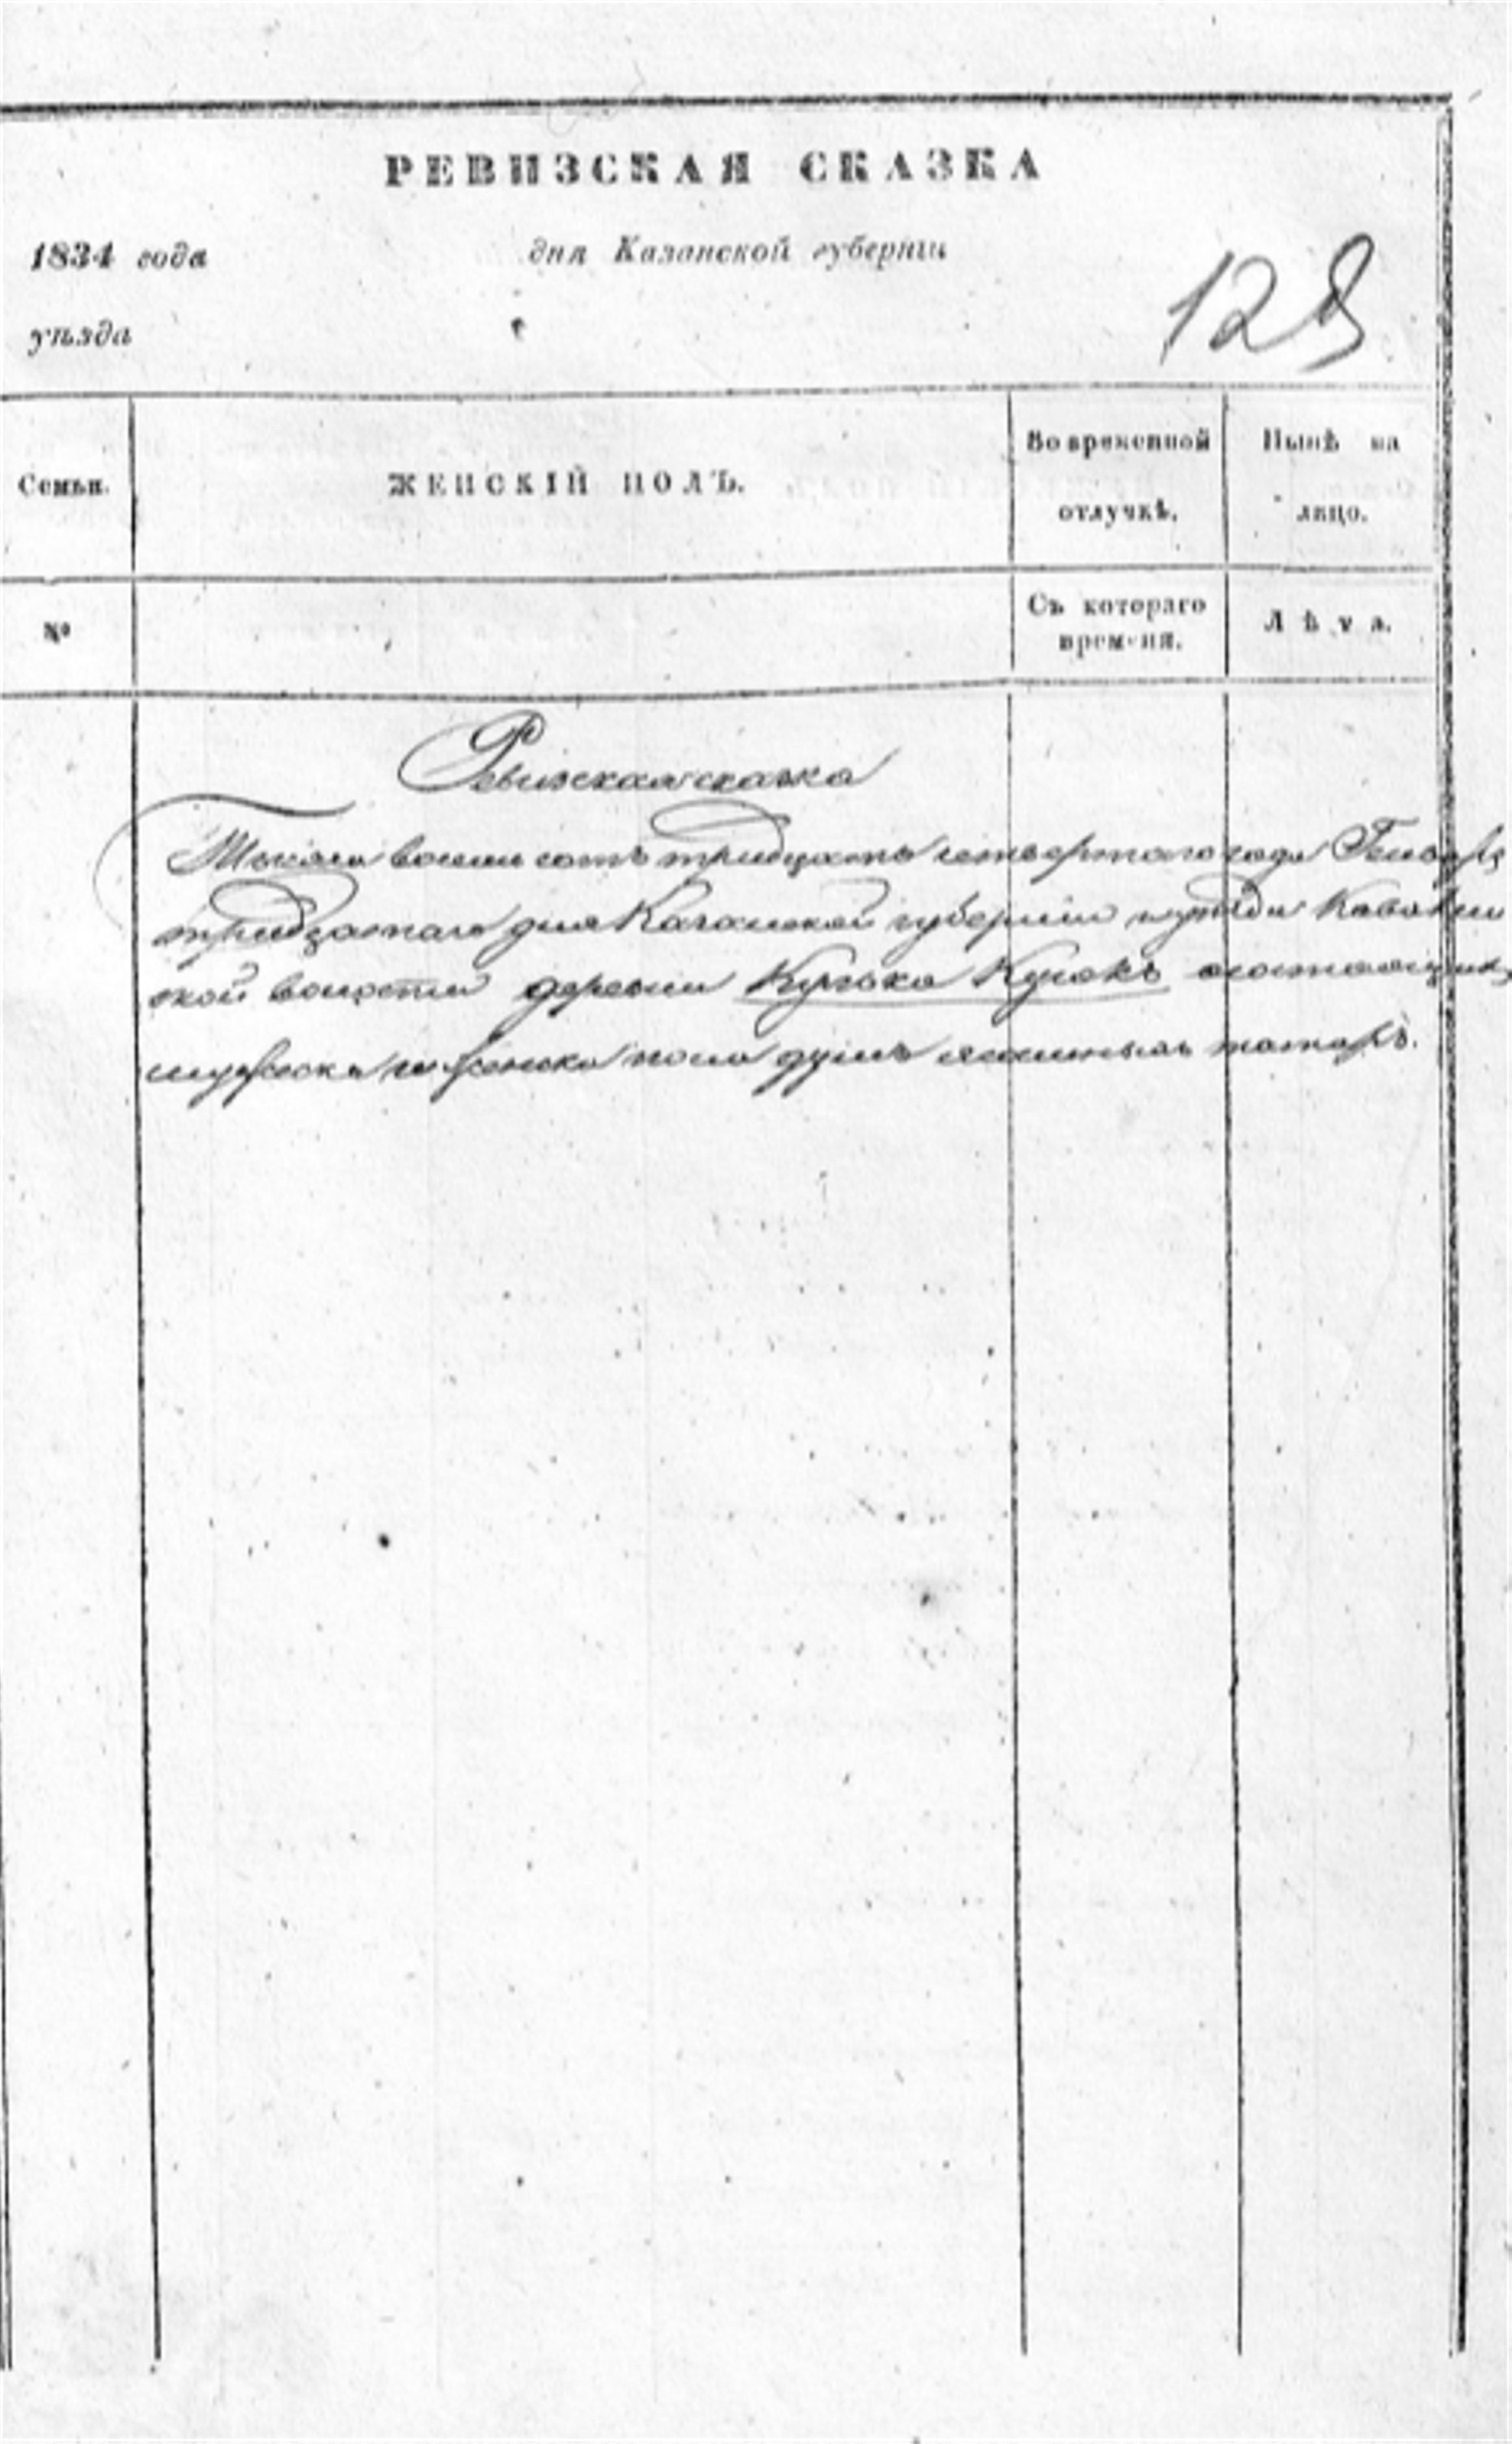 РЕВИЗСКАЯ СКАЗКА
1834 года дня Казанской губерніи
уѣзда
128
Семьи. ЖЕНСКІЙ ПОЛЪ. Во временной отлучкѣ. Нынѣ на лицо.
№ Съ котораго времени. Лѣта.
Ревизская сказка
Тысяча восемь сотъ тридцать четвертаго года Генваря
тридцатаго дня Казанской губерніи и уѣзда
ской волости деревни состоящихъ
мужеска и женска пола душъ татаръ.